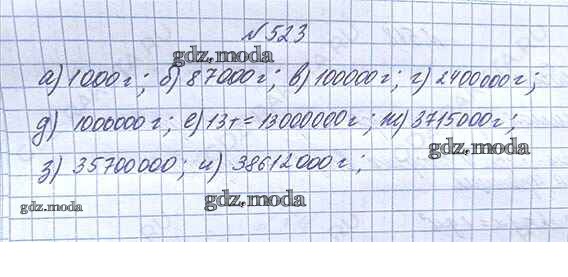 №523
gdz.moda
а) 1000г; б) 87000г; в) 100000г; г) 2400000г;
д) 1000000г; е) 13т = 13000000г; ж) 3715000г;
gdz.moda
з) 35700000; и) 38612000г;
gdz.moda
gdz.moda